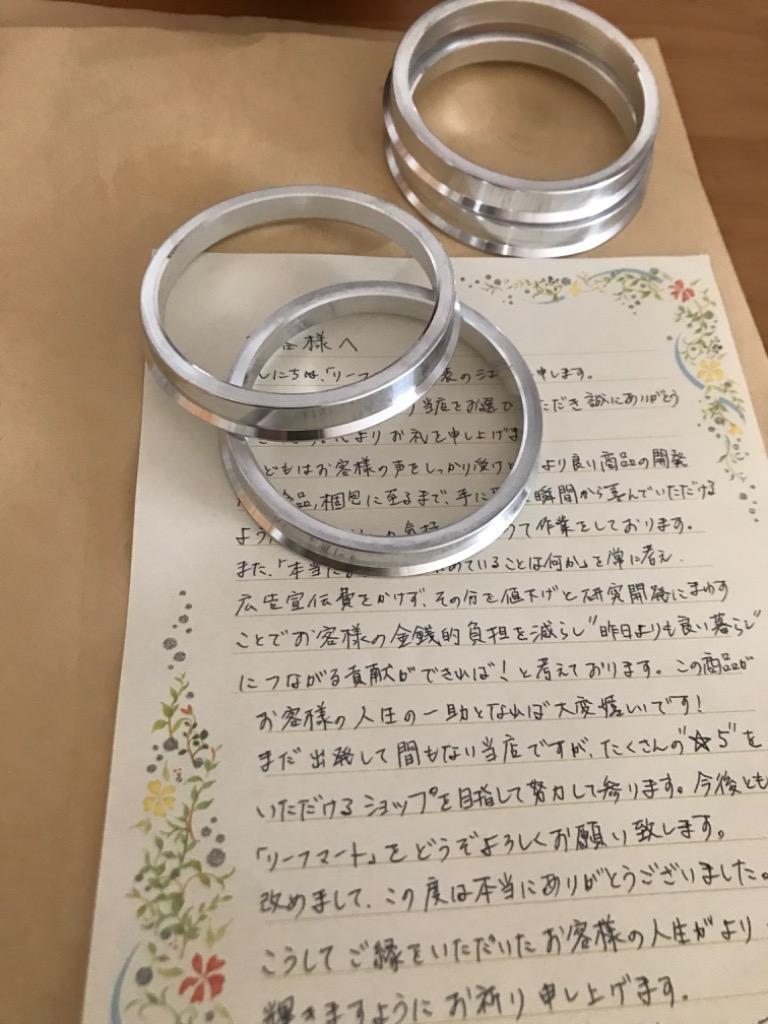 客様へ
にちは、「リーフマ 表の 申します。
り当店をお選び ただき誠にありがとう
よりお礼を申し上げま
どもはお客様の声をしっかり受け より良い商品の開発
品,梱包に至るまで、手に 瞬間から喜んでいただける
よう って作業をしております。
また、「本当に めていることは何か」を常に考え
広告宣伝費をかけず、その分を値下げと研究開発にまわす
ことでお客様の金銭的負担を減らし"昨日よりも良い暮らし"
につながる貢献ができれば!と考えております。この商品が
お客様の人生の一助となれば大変嬉しいです!
まだ出発して間もない当店ですが、たくさんの"☆5"を
いただけるショップを目指して努力して参ります。今後とも
「リーフマート」をどうぞよろしくお願い致します。
改めまして、この度は本当にありがとうございました。
こうしてご縁をいただいたお客様の人生がより
輝きますようにお祈り申し上げます。